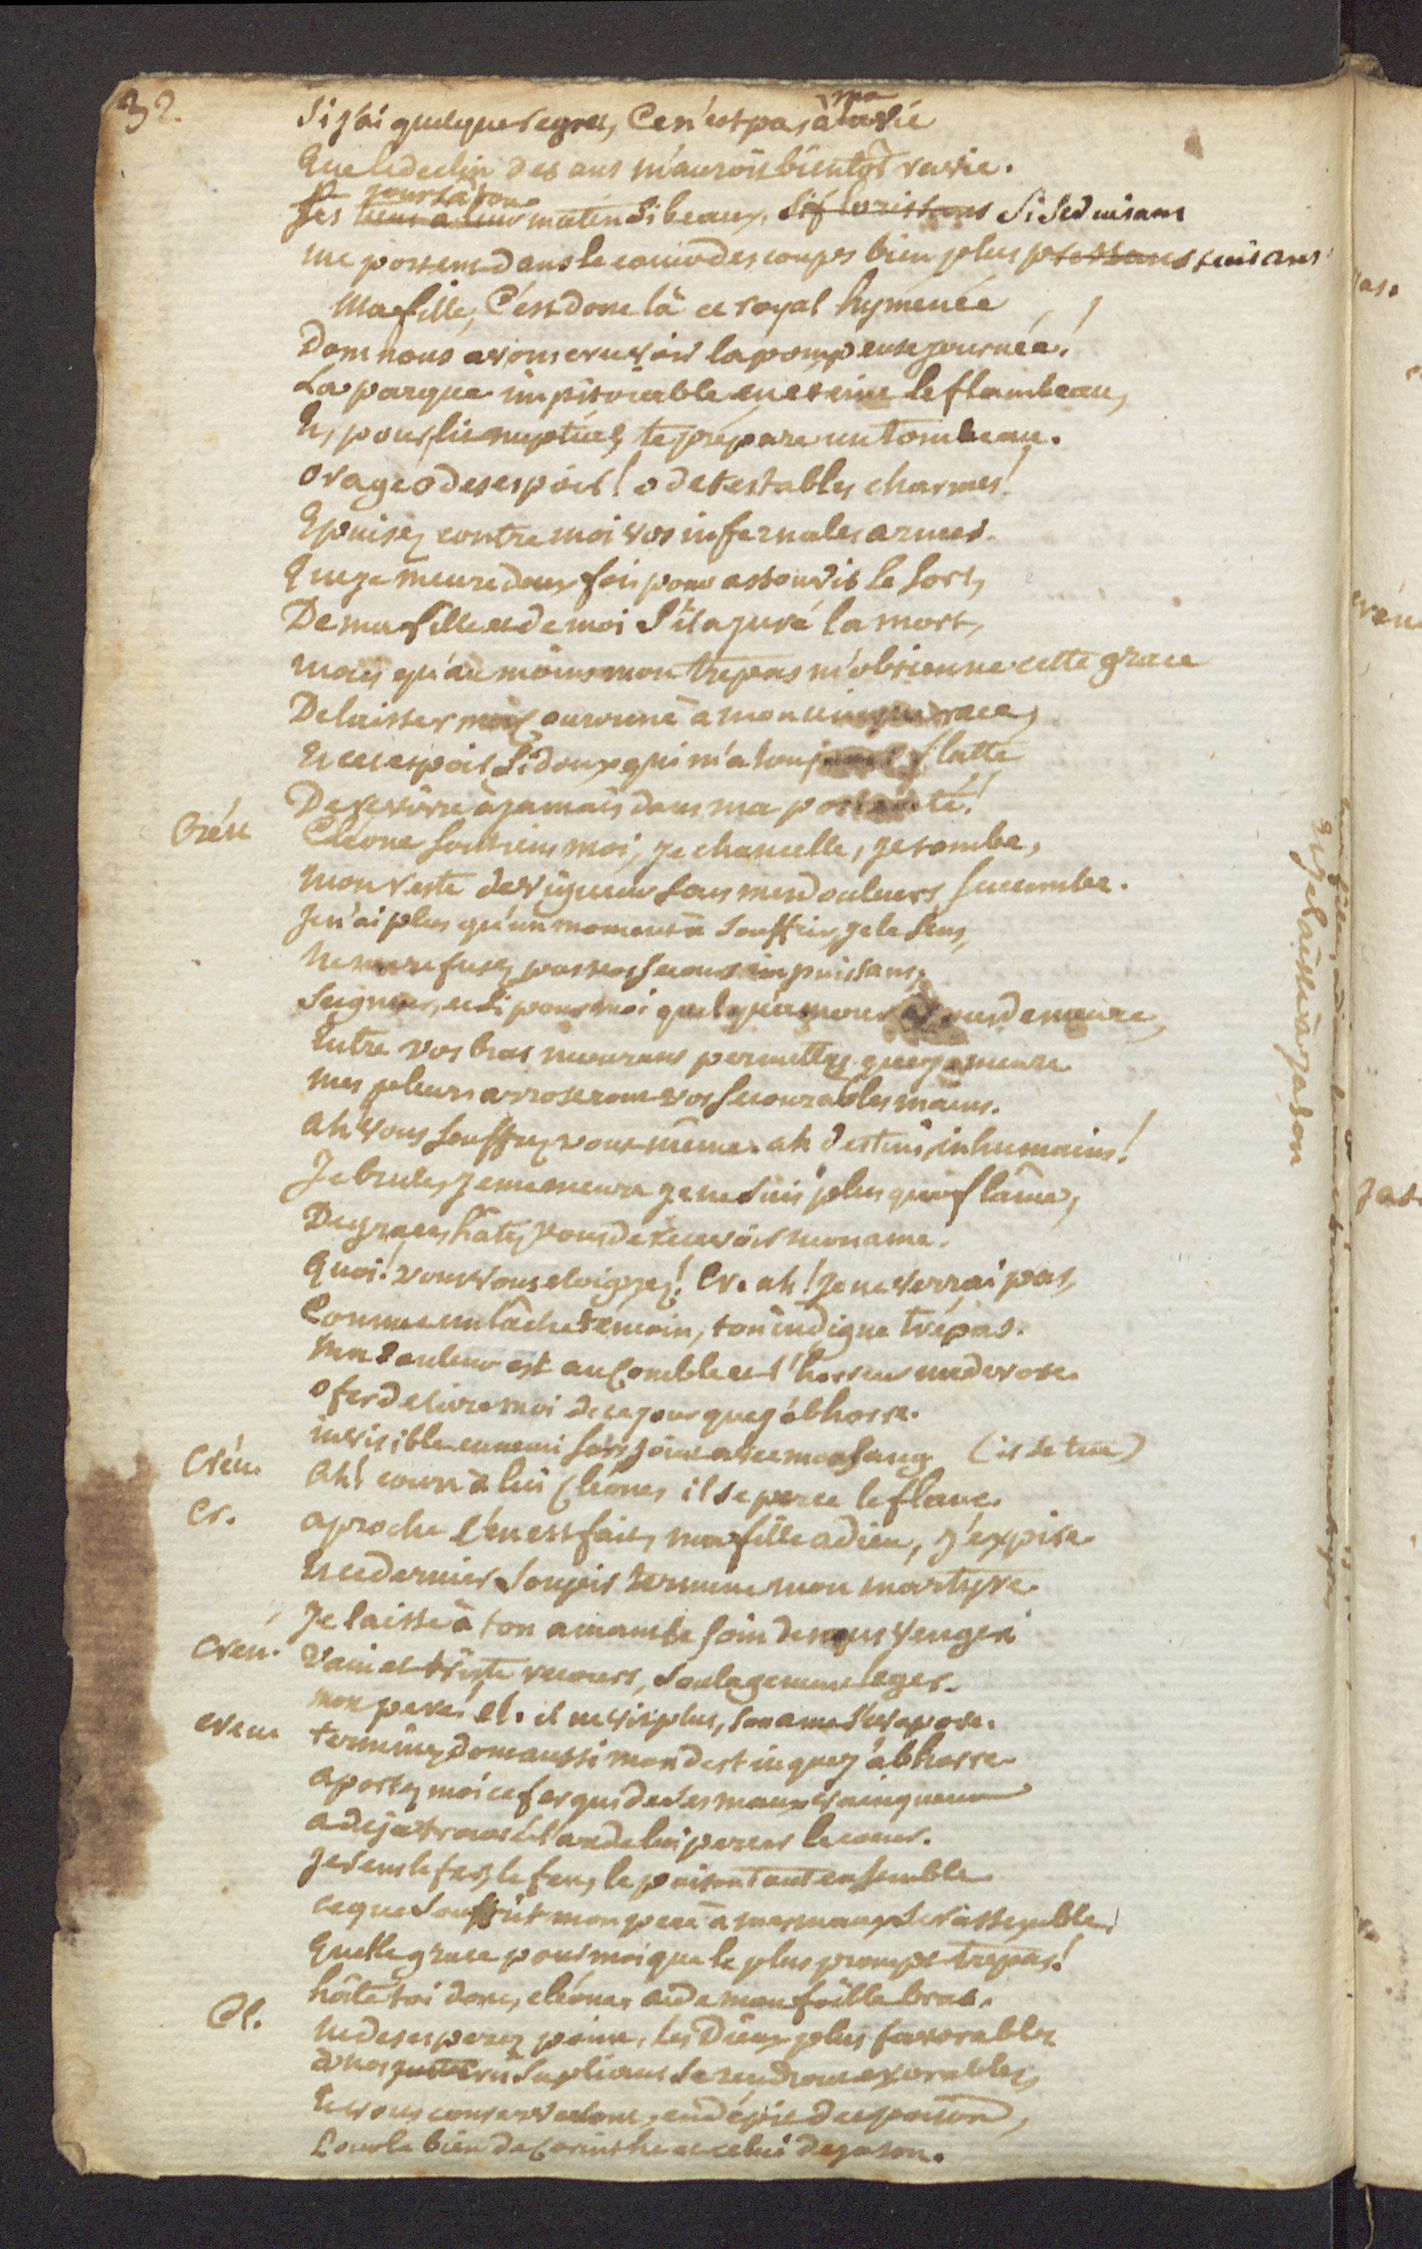 32.
Si j'ai quelque regret, Ce n'est pas à ma vie
Que le declin des ans m'auroit bientôt ravie.
Jes matin si beaux, si florissans si séduisans
me portent dans le coeur des coups bien plus cuisans
Ma fille, C'est donc là ce royal hyménée
Dont nous avons cru voir la pompeuse journée!
La parque impitoiable en eteint le flambeau,
Et, pour lit nuptial, te prépare un tombeau.
O rage o desespoir! o detestables charmes!
Epuisez contre moi vos infernales armes.
Que je meure deux fois pour assouvir le sort,
De ma fille et de moi s'il a juré la mort,
mais qu'au moins mon trepas m'obtienne cette grace
De laisser ma couronne à mon unique race,
Et cet espoir si doux qui m'a toujours flatté
De revivre à jamais dans ma postérité!
Créu Cléone soutiens moi, je chancelle, je tombe,
Mon reste de vigueur sous mes douleurs sucombe.
Je n'ai plus qu'un moment à souffrir, je le sens,
Ne me refusez pas vos secours impuissans,
Seigneur, et si pour moi quelqu'amour demeure,
Entre vos bras mourans permettez que je meure
mes pleurs arroseront vos secourables mains.
ah vous souffrez vous même. ah destins inhumains!
Je brule, je me meurs je ne suis plus que flâme,
De grace, hâtez vous de recevoir mon ame.
Quoi! vous vous eloignez! Cr. ah! Je ne verrai pas,
Comme un lâche temoin, ton indigne trépas.
Ma douleur est au comble et l'horreur me devore.
O fer delivre moi de ce jour que j'abhorre.
invisible ennemi sors avec mon sang (il se tue)
Créu. Ah! cours à lui Cléone, il se perce le flanc.
Cr. aproche c'en est fait, ma fille adieu, j'expire.
Et ce dernier soupir termine mon martyre.
Je laisse à ton amant le soin de nous venger
Creü. Vain et triste recours, soulagement leger.
mon pere! Cl. il ne vit plus, son ame s'evapore.
creue terminez donc aussi mon destin que j'abhorre
aportez moi ce fer qui de ses maux vainqueur
a deja trouvé l'art de lui percer le coeur.
Je sens le fer, le feu, le poison tout ensemble
ce que souffrit mon pere à mes maux se rassemble.
Quelle grace pour moi que le plus prompt trepas!
hâte toi donc, cléone, aide mon foible bras.
Cl. Ne desesperez point, les Dieux plus favorables
à nos suplians se rendront exorables,
Et vous conserveront, en dépit du poison,
Pour le bien de Corinthe et celui de jason.
Et je laisse à jason
jas.
créu
Jas